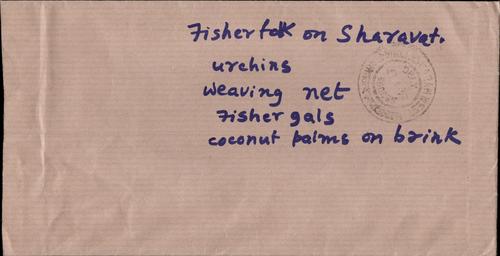 Fisherfolk on Sharavat.
urchins
weaving net
Fisher gals
coconut palms on brink